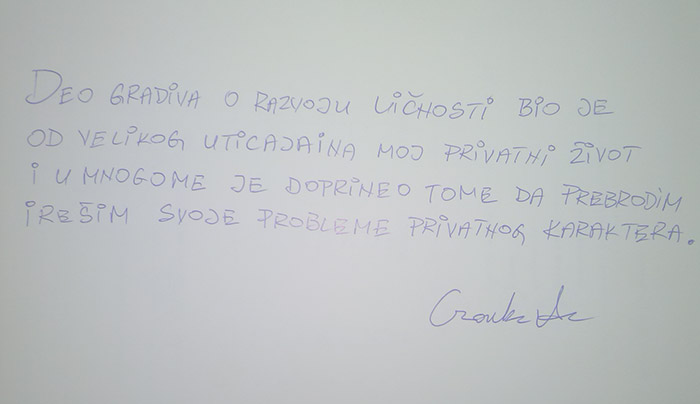 DEO GRADIVA O RAZVOJU LIČNOSTI BIO JE
OD VELIKOG UTICAJA NA MOJ PRIVATNI ŽIVOT
I U MNOGOME JE DOPRINEO TOME DA PREBRODIM
I REŠIM SVOJE PROBLEME PRIVATNOG KARAKTERA.